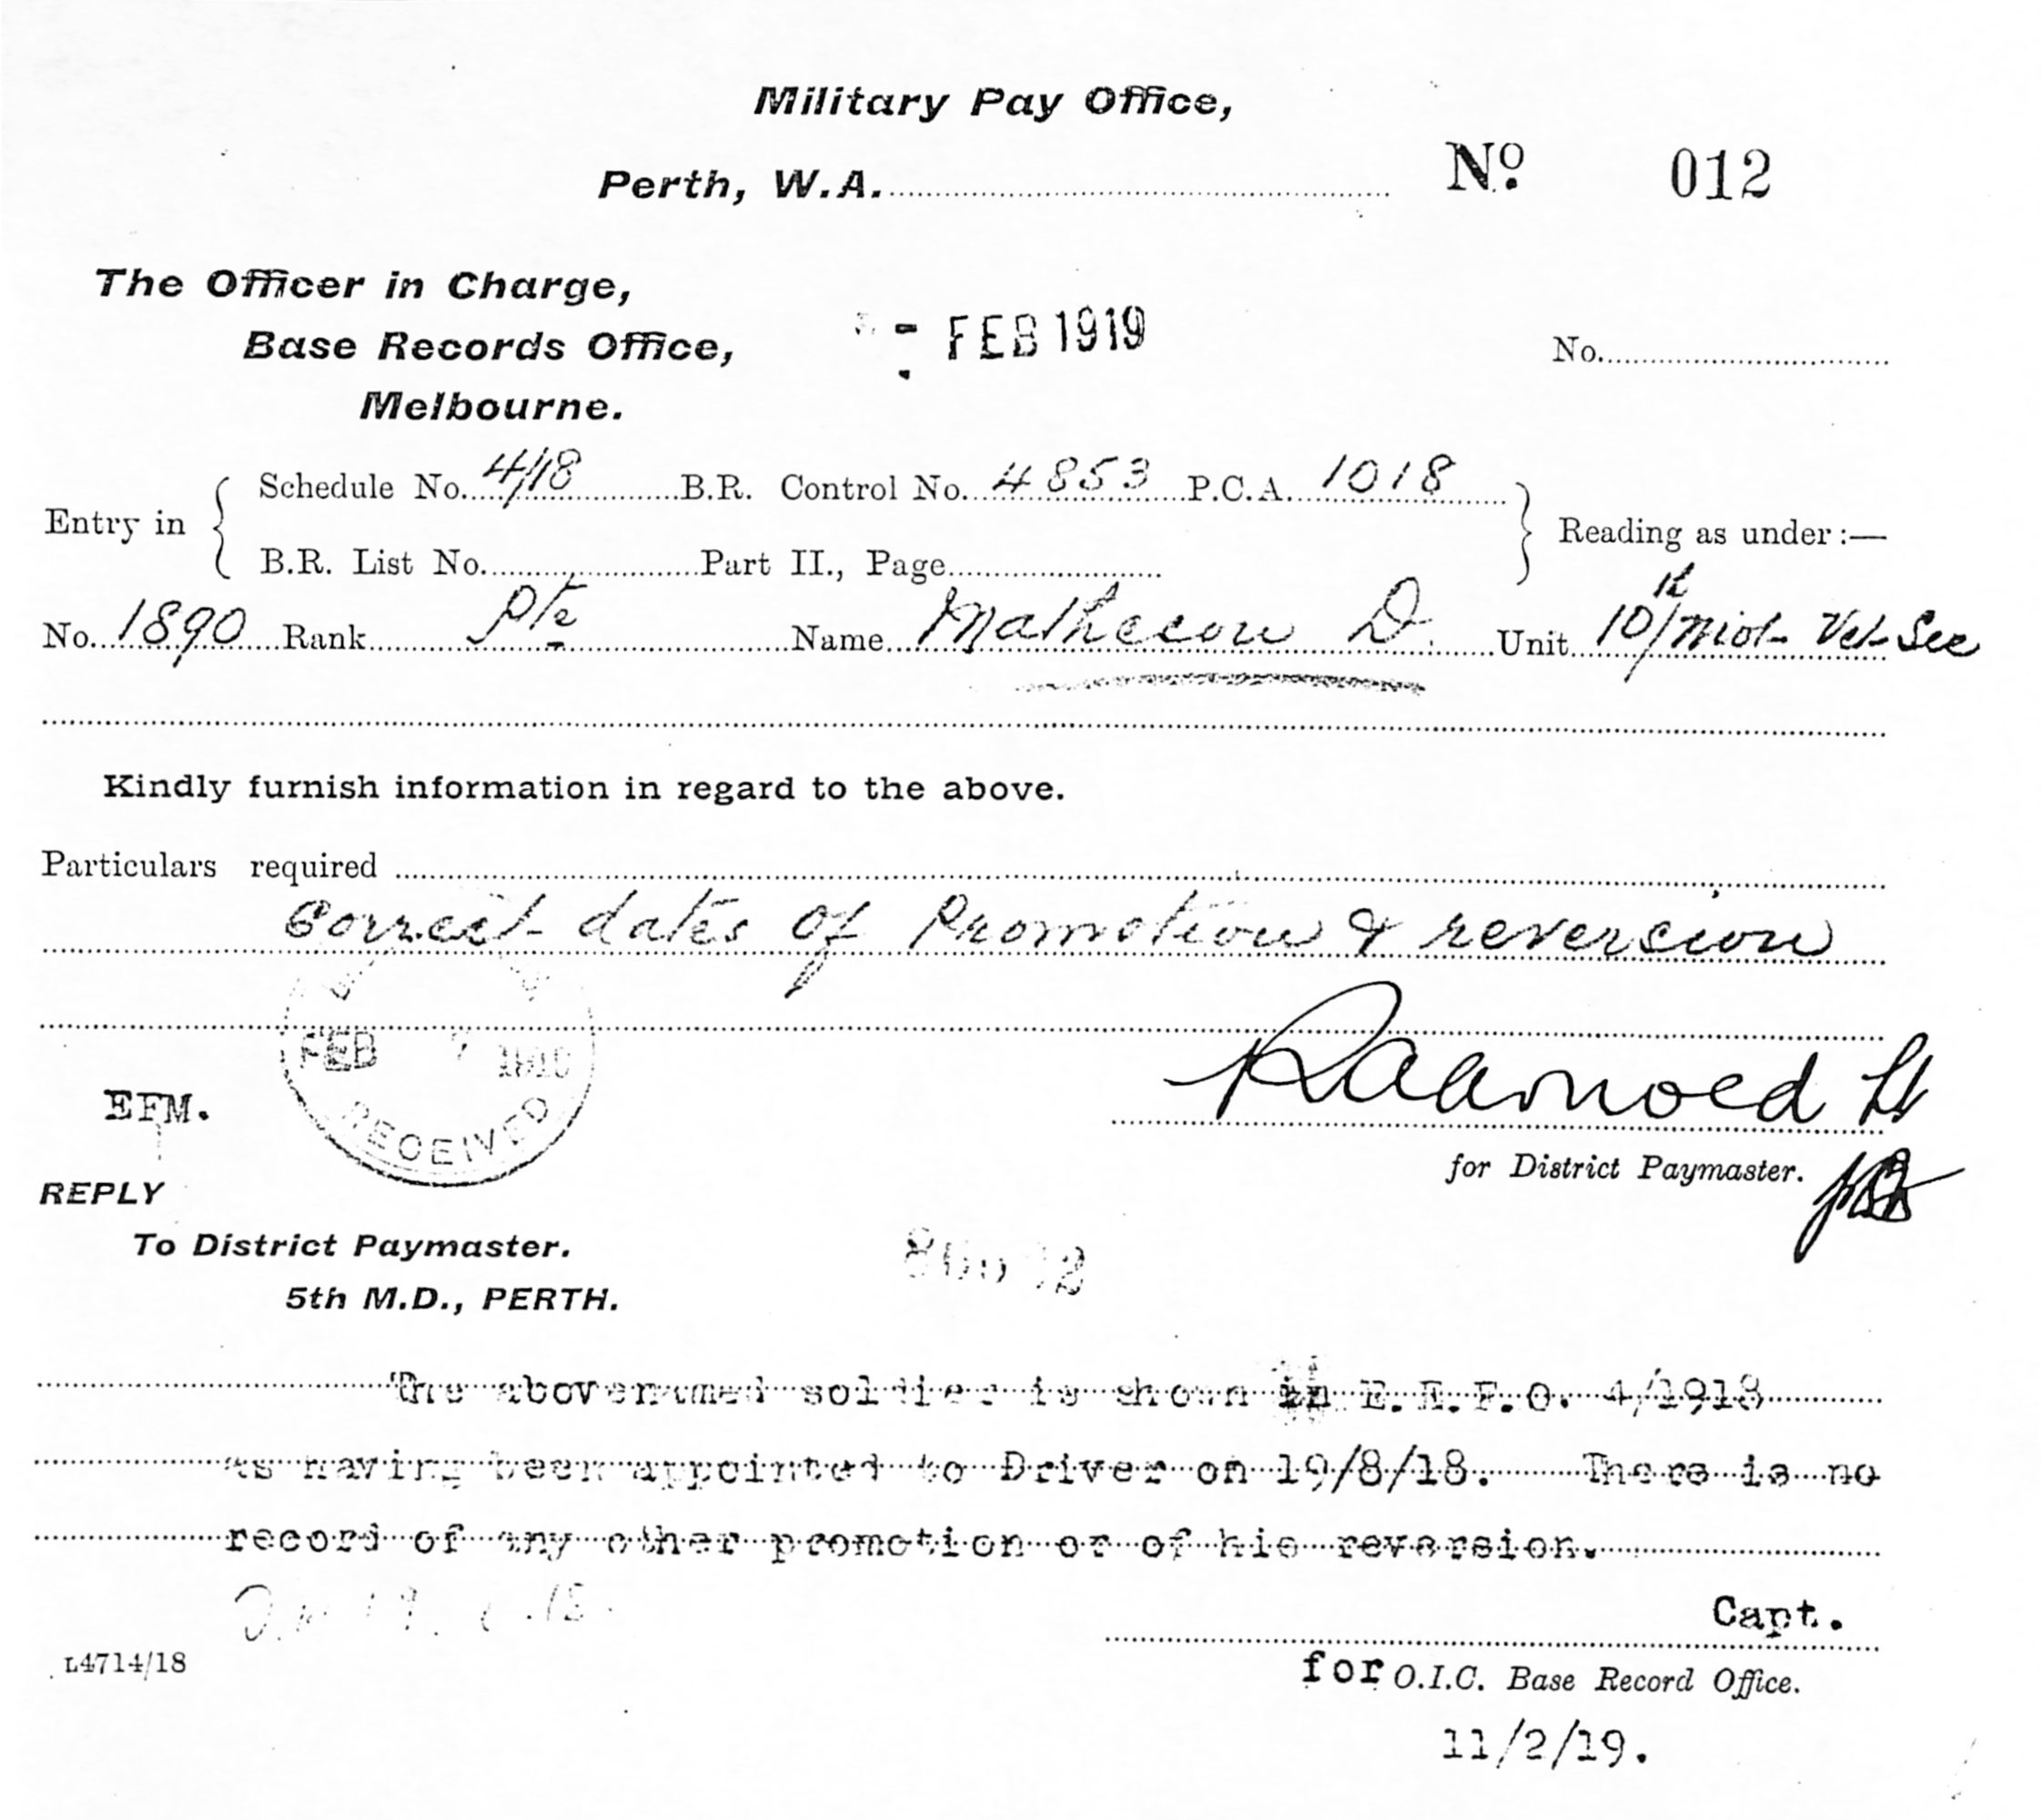 Military Pay Office,
Perth, W.A. Nº 012
The Officer in Charge,
Base Records Office,
Melbourne.
- FEB 1919
No.
Entry in
Schedule No. 4/18 B.R. Control No. 4853 P.C.A. 1018
B.R. List No. Part II., Page
Reading as under:—
No. 1890 Rank Pte Name Matheson D. Unit 10th Mob Vet Sec
Kindly furnish information in regard to the above.
Particulars required
Correct dates of Promotion & reversion
FEB 7 1919
RECEIVED
EFM.
for District Paymaster.
REPLY
To District Paymaster.
5th M.D., PERTH.
The abovenamed soldier is shown in E.E.F.O. 4/1918
as having been appointed to Driver on 19/8/18. There is no
record of any other promotion or of his reversion.
Capt.
L4714/18
for O.I.C. Base Record Office.
11/2/19.